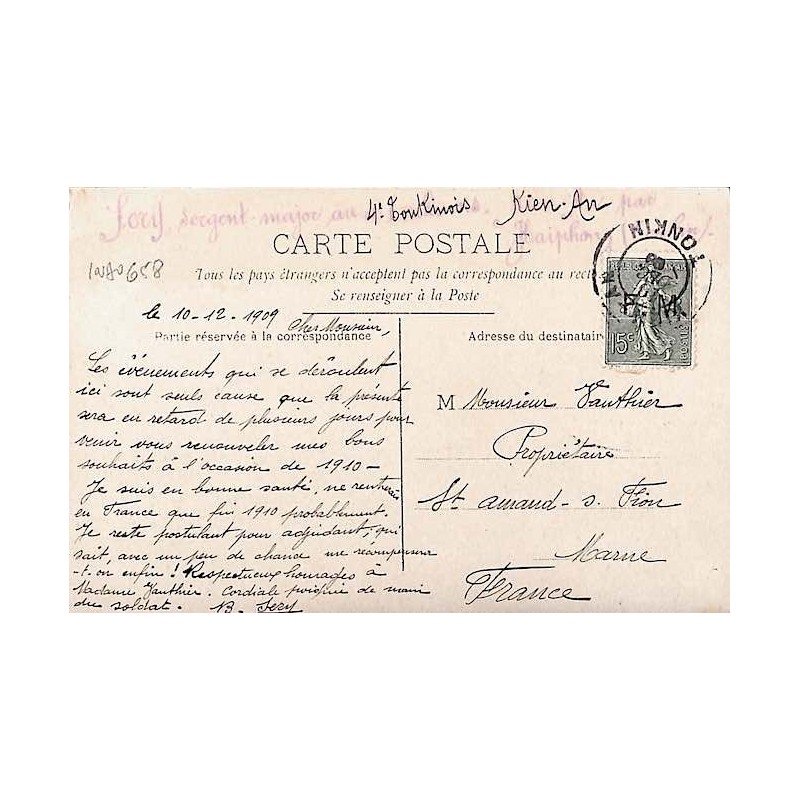 Sery, sergent-major au 4e Tonkinois, Kien-An par
Haiphong
CARTE POSTALE
Tous les pays étrangers n'acceptent pas la correspondance au recto
Se renseigner à la Poste
TONKIN
F. M.
15c
le 10-12-1909
Cher Monsieur,
Partie réservée à la correspondance
Adresse du destinataire
Les évènements qui se déroulent
ici sont seuls cause que la présente
sera en retard de plusieurs jours pour
venir vous renouveler mes bons
souhaits à l'occasion de 1910 -
Je suis en bonne santé, ne rentrerai
en France que fin 1910 probablement.
Je reste postulant pour adjudant; qui
sait, avec un peu de chance me récompensera
-t-on enfin! Respectueux hommages à
Madame Vauthier. Cordiale poignée de main
du soldat. B. Sery
M Monsieur Vauthier
Propriétaire
St Amand-s. Fion
Marne
France